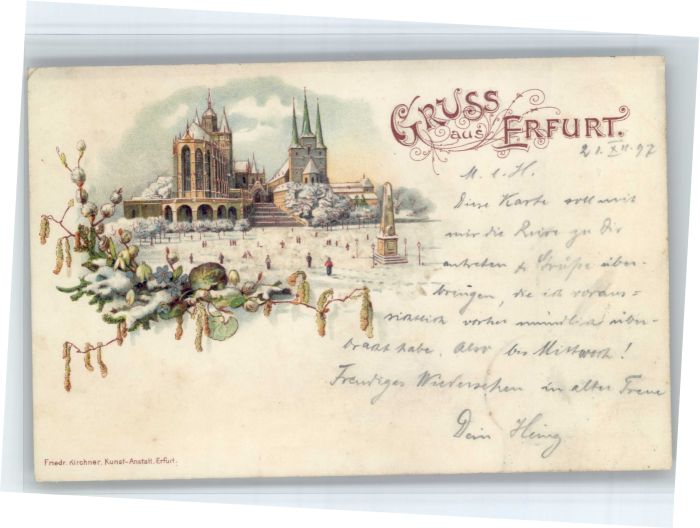 GRUSS
aus ERFURT.
21. XII. 97
M. l. H.
Diese Karte soll mit
mir die Reise zu Dir
antreten & Grüße über-
bringen, die ich voraus-
sichtlich vorher mündlich über-
bracht habe. Also bis Mittwoch!
Freudiges Wiedersehen in alter Treue
Dein
Friedr. Kirchner, Kunst-Anstalt, Erfurt.